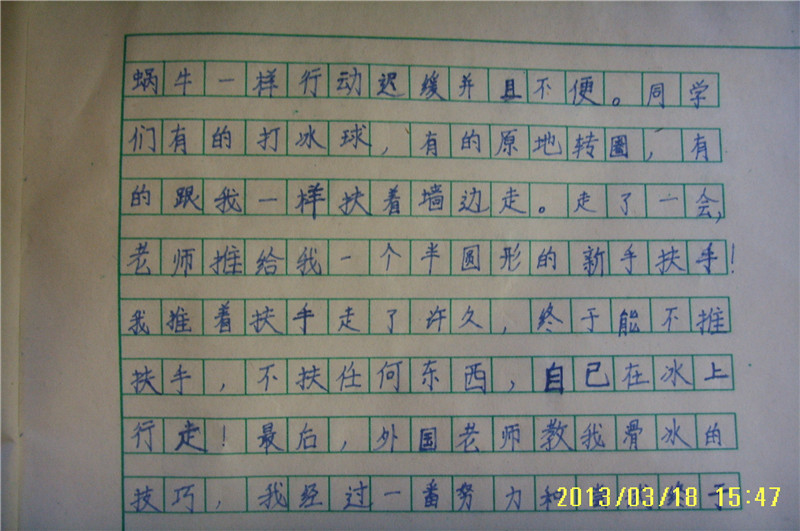 蜗牛一样行动迟缓并且不便。同学
们有的打冰球，有的原地转圈，有
的跟我一样扶着墙边走。走了一会，
老师推给我一个半圆形的新手扶手！
我推着扶手走了许久，终于能不推
扶手，不扶任何东西，自己在冰上
行走！最后，外国老师教我滑冰的
技巧，我经过一番努力和
2013/03/18 15:47